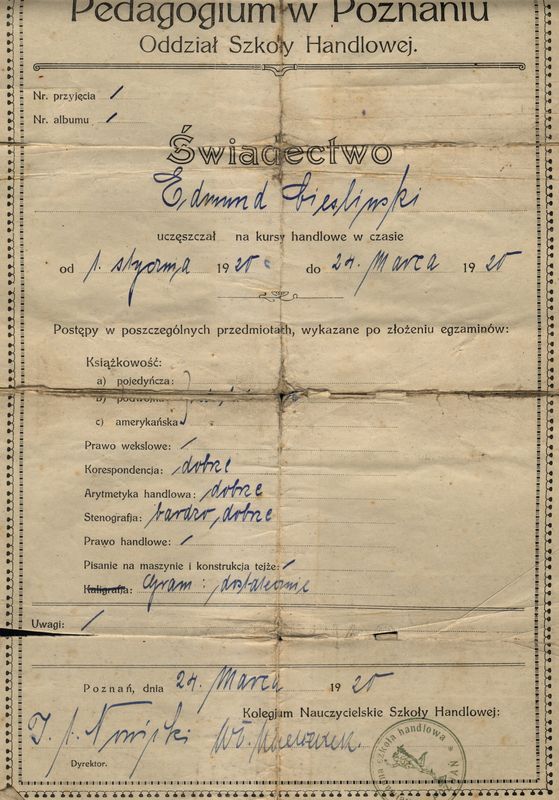 Pedagogium w Poznaniu
Oddział Szkoły Handlowej.
Nr. przyjęcia /
Nr. albumu /
Świadectwo
Edmund Cieśliński
uczęszczał na kursy handlowe w czasie
od 1. stycznia 1920 do 24. Marca 1920
Postępy w poszczególnych przedmiotach, wykazane po złożeniu egzaminów:
Książkowość:
a) pojedyńcza:
b) podwójna
c) amerykańska
Prawo wekslowe: /
Korespondencja: dobrze
Arytmetyka handlowa: dobrze
Stenografja: bardzo dobrze
Prawo handlowe: /
Pisanie na maszynie i konstrukcja tejże: /
Kaligrafja: Gram: dostatecznie
Uwagi: /
Poznań, dnia 24. Marca 1920
Kolegjum Nauczycielskie Szkoły Handlowej:
Dyrektor.
szkoła handlowa